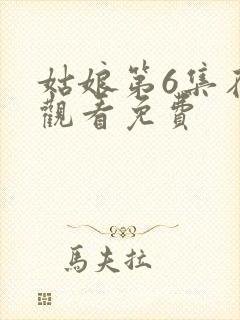 姑娘第6集在
觀看免費
馬夫拉